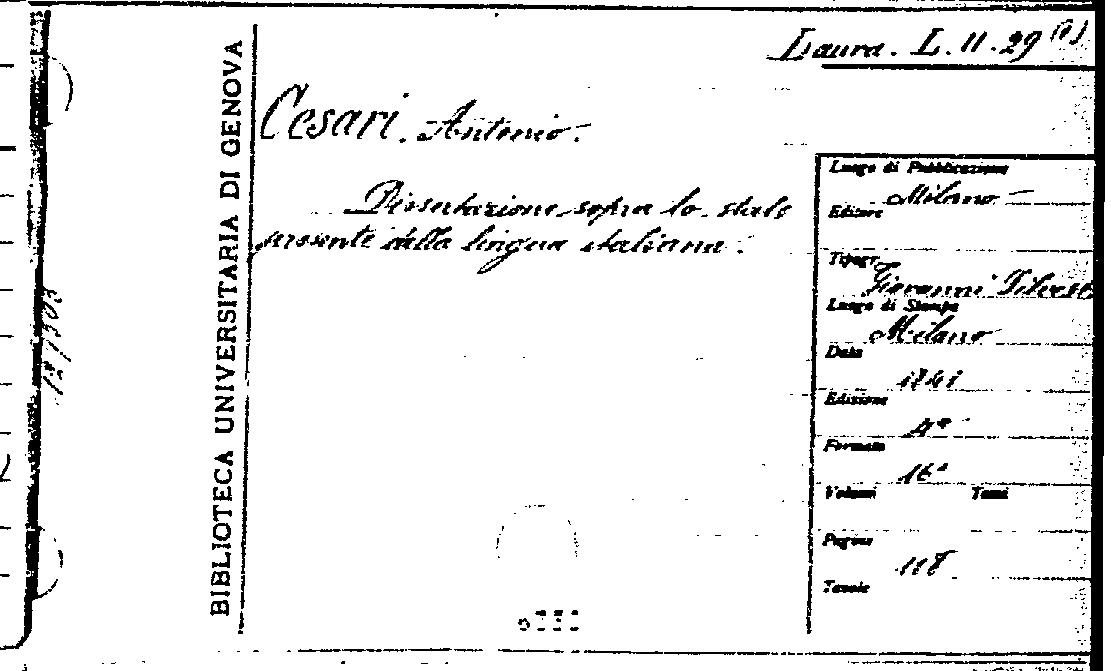 Laura. L. 11. 29 (1)
BIBLIOTECA UNIVERSITARIA DI GENOVA
Cesari. Antonio.
Dissertazione sopra lo stato
presente della lingua italiana.
Luogo di Pubblicazione
Milano
Editore
Tipogr.
Giovanni Silves
Luogo di Stampa
Milano
Data
1841
Edizione
Formato
16°
Volumi Tomi
Pagine
118
Tavole